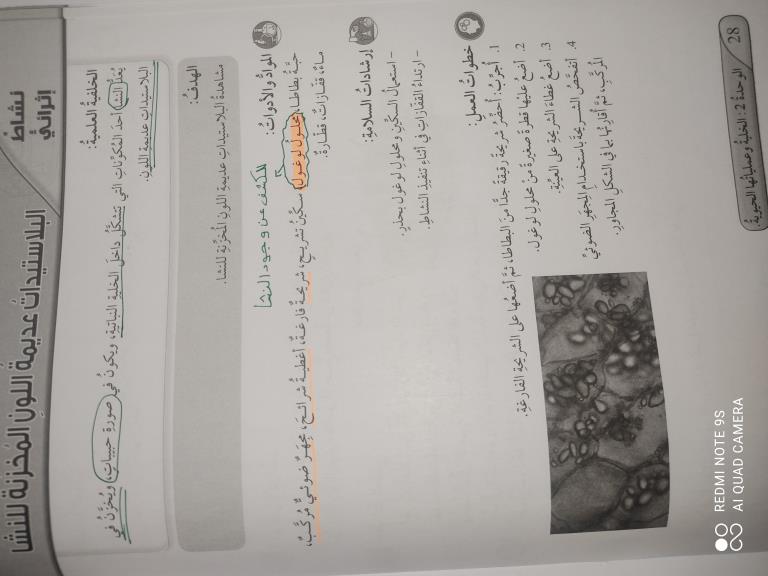 نشاطٌ إثرائيٌّ
البلاستيداتُ عديمةُ اللونِ المخزنةُ للنشا
الخلفيةُ العلميةُ:
يُعَدُّ النشا أحدَ المُكوِّناتِ التي تتشكَّلُ داخلَ الخليةِ النباتيةِ، ويكونُ في صورةِ حبيباتٍ، ويُخزَّنُ في
البلاستيداتِ عديمةِ اللونِ.
الهدفُ:
مشاهدةُ البلاستيداتِ عديمةِ اللونِ المُخزِّنةِ للنشا.
للكشف عن وجود النشا
الموادُّ والأدواتُ:
حبَّةُ بطاطا، محلولُ لوغول، سكّينُ تشريحٍ، شريحةٌ فارغةٌ، أغطيةُ شرائحَ، مِجْهَرٌ ضوئيٌّ مُركَّبٌ،
ماءٌ، قفّازاتٌ، قطّارةٌ.
إرشاداتُ السلامةِ:
- استعمالُ السكّينِ ومحلولِ لوغول بحذرٍ.
- ارتداءُ القفّازاتِ في أثناءِ تنفيذِ النشاطِ.
خطواتُ العملِ:
1. أُجرِّبُ: أُحضِّرُ شريحةً رقيقةً جدًّا من البطاطا، ثمَّ أضعُها على الشريحةِ الفارغةِ.
2. أضعُ عليها قطرةً صغيرةً من محلولِ لوغول.
3. أضعُ غطاءَ الشريحةِ على العيِّنةِ.
4. أتفحَّصُ الشريحةَ باستخدامِ المِجْهَرِ الضوئيِّ
المُركَّبِ، ثمَّ أُقارِنُها بما في الشكلِ المجاورِ.
28 الوحدةُ 2: الخليةُ وعملياتُها الحيويةُ.
REDMI NOTE 9S
AI QUAD CAMERA